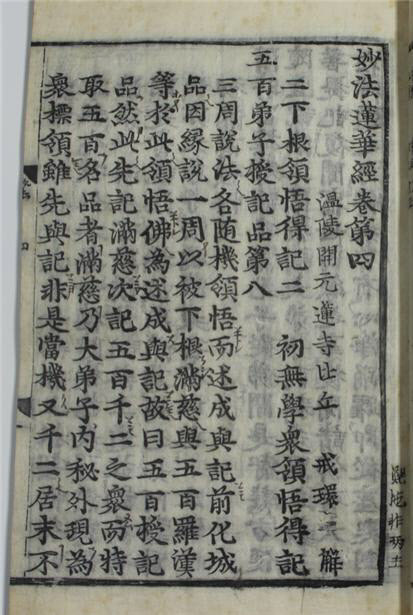 妙法蓮華經卷第四
溫陵開元蓮寺比丘 戒環 解
二下根領悟得記二 初無學衆領悟得記
五百弟子授記品第八
三周說法各随機領悟而述成與記前化城
品因縁說一周以被下根滿慈與五百羅漢
等於此領悟佛為述成與記故曰五百授記
品然此先記滿慈次記五百千二之衆而特
取五百名品者滿慈乃大弟子內秘外現為
衆標領雖先與記非是當機又千二居末不